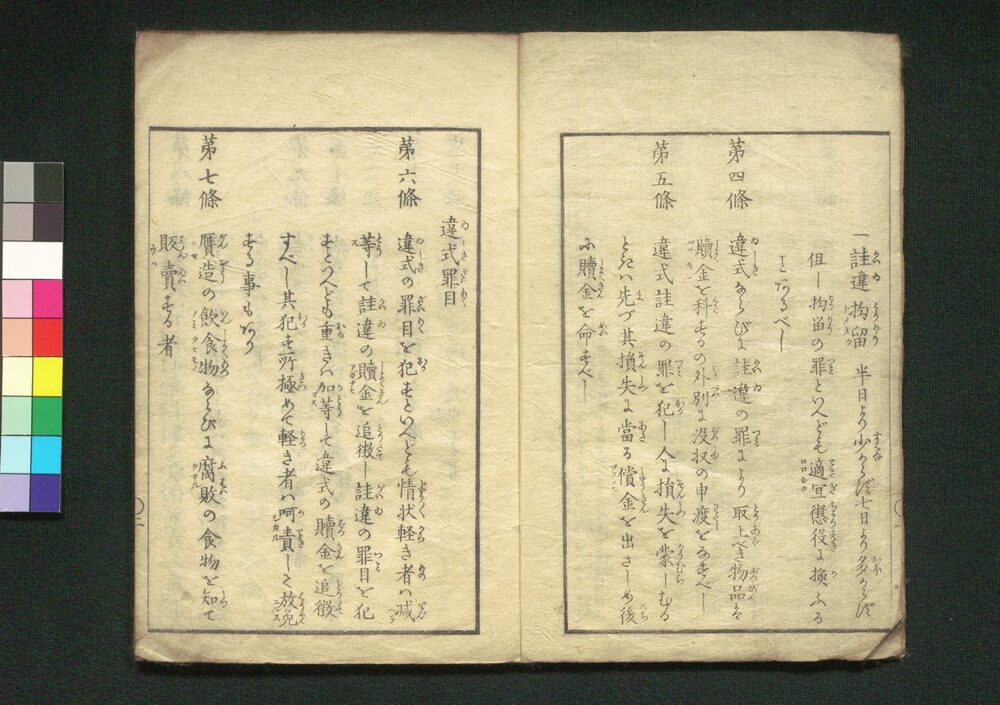 一 詿違 拘留 半日より少からず七日より多からず
但し拘留の罪といへども適宜懲役に換ふる
ことあるべし
第四條 違式ならびに詿違の罪により取上べき物品は
贖金を科するの外別に没収の申渡をなすべし
第五條 違式詿違の罪を犯し人に損失を蒙しむる
ときハ先づ其損失に當る償金を出さしめ後
に贖金を命ずべし
違式罪目
第六條 違式の罪目を犯すといへども情状軽き者ハ減
等して詿違の贖金を追徴し詿違の罪目を犯
すといへども重きハ加等して違式の贖金を追徴
すべし其犯す所極めて軽き者ハ呵責して放免
する事もあり
第七條 贋造の飲食物ならびに腐敗の食物を知て
販賣する者